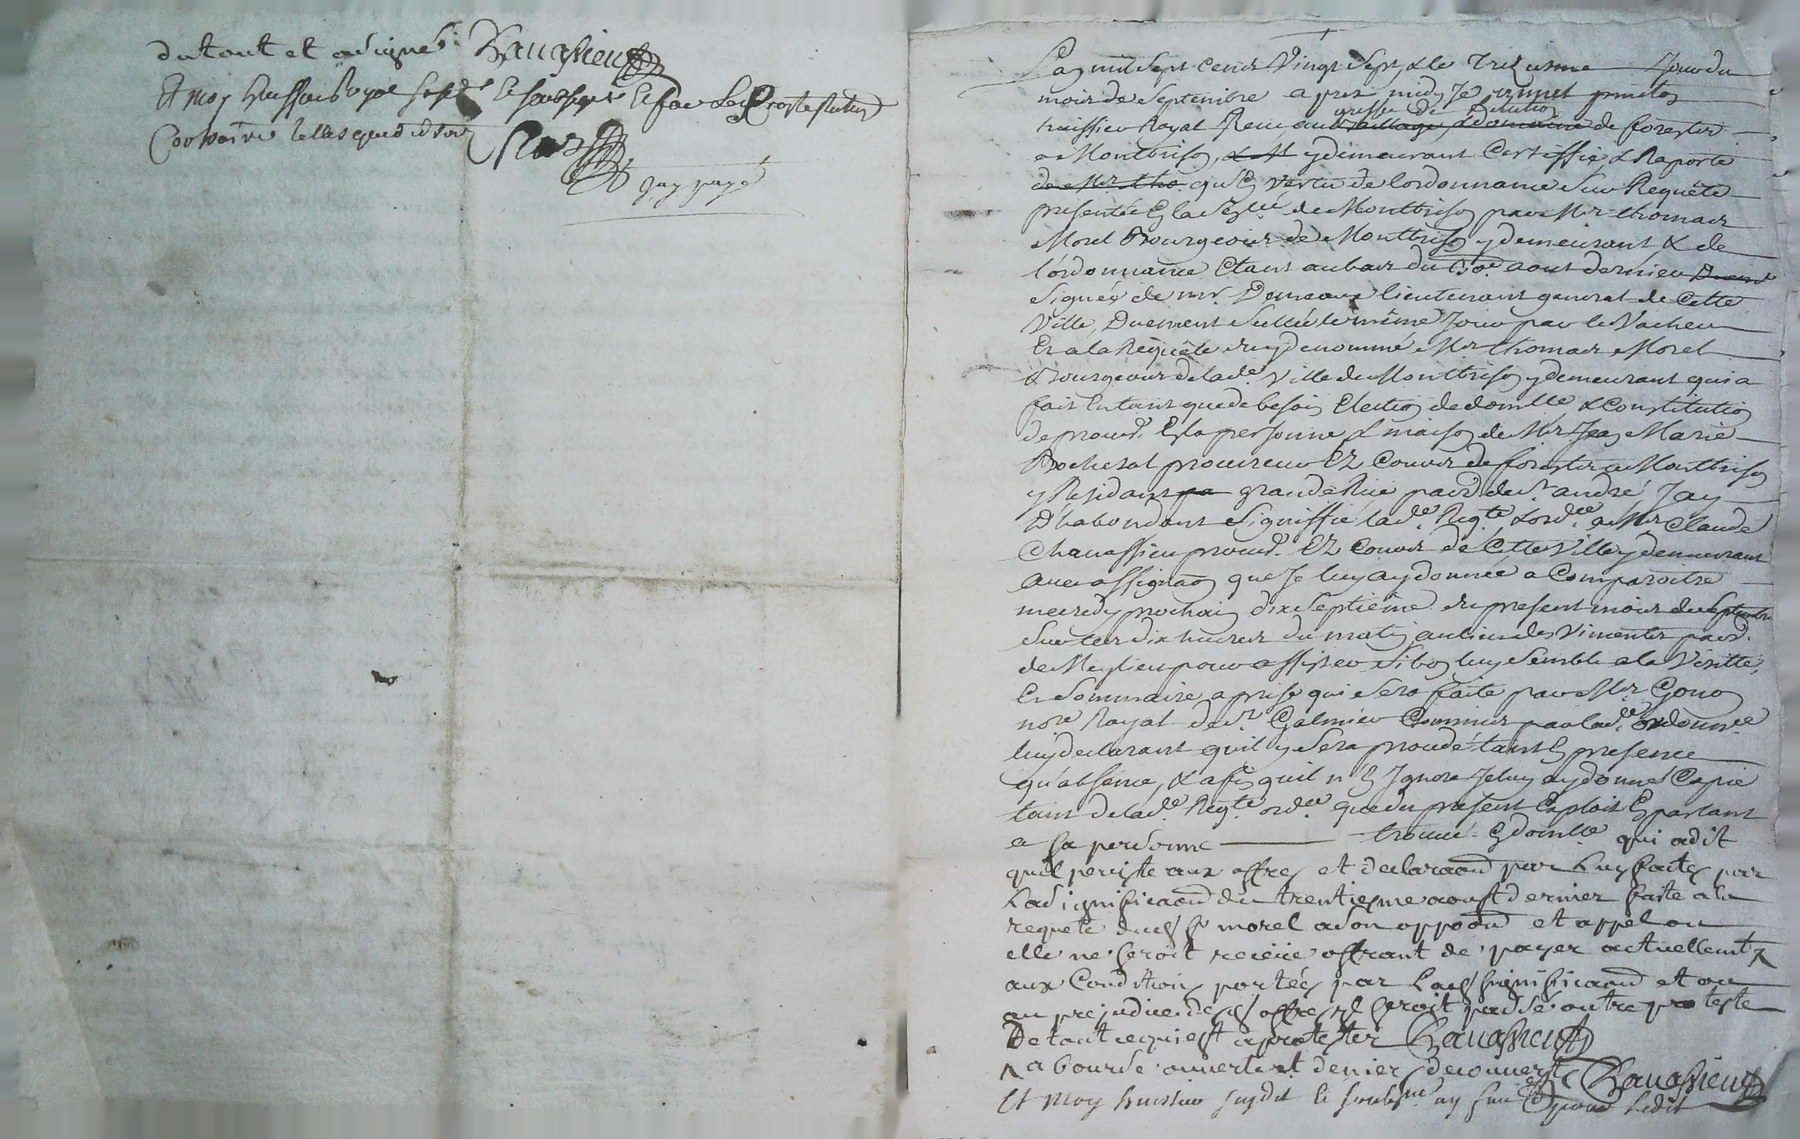 du tout et a signé Chavassieu
Et moy huissier royal le soussigné
Contraire
jay payé
Lan mil sept cents vingt sept, & le treizieme jour du
mois de septembre apres midy Je
greffe de
huissier Royal Receu au bailliage & domaine de forestz
a Montbrison, & M y demeurant Certiffie & Raporte
de Mr tho qu'en vertu de lordonnance sur Requête
presentée en la de Montbrison par Mr thomas
Morel Bourgeois de Montbrison y demeurant & de
l'ordonnance etant au bas du 30e aout dernier
signée de mr. Demeaux lieutenant general de Cette
Ville, Duement scellée le même Jour par le Vacheur
Et a la Requête du sy denommé Mr thomas Morel
Bourgeois de lade. Ville de Montbrison y demeurant qui a
fait Entant que de besoin Election de domlle & Constitution
de procur. En la personne & maison de Mr Jean Marie
Rochesat procureur EZ Cours de forestz a Montbrison
y Residant pa grande Rüe paroi. de St andré Jay
D'habondant signiffié lade. Reqte. & ordce. a Mr Claude
Chavassieu procur. EZ Cours de Cette Ville y demeurant
avec assignaon que Je luy ay donnée a Comparoitre
mecredy prochain dix septième du present mois de septembre
sur les dix heures du matin au lieu des Vimentes paroi.
de Meylieu pour assister si bon luy semble a la Visitte,
Et sommaire aprise qui sera faite par Mr Gonon
nore Royal de St Galmier Commis par lade. ordonnce
luy declarant qu'il y sera procedé tant En presence
qu'absence, & afin quil n'En Ignore Je luy ay donné Copie
tant de lade. Reqte. ordce. que du present Exploit En parlant
a sa personne trouvé En domlle qui a dit
quil persiste aux offres et declaraon par luy faites par
la significaon du trentiesme aoust dernier faite a la
requete dud sr morel a son oppoon et appel ou
elle ne seroit receüe offrant de payer actuellemt
aux Conditions portées par lad significaon et ou
au prejudice desd offres il seroit passé outre proteste
De tout ce qui est a protester Chavassieu
a bourse ouverte et deniers decouverts Chavassieu
Et moy huissier susdit et soubsne ay